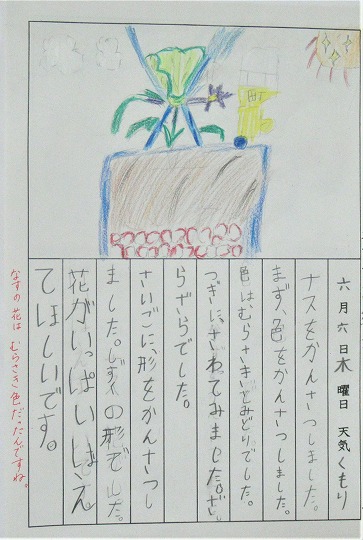 六月六日木曜日 天気くもり
ナスをかんさつしました。
まず、色をかんさつしました。
色はむらさきいろとみどりでした。
つぎに、さわってみました。ざ
らざらでした。
さいごに、形をかんさつし
ました。しずくの形でした。
花がいっぱいいっぱいさい
てほしいです。
なすの花は むらさき色だったんですね。